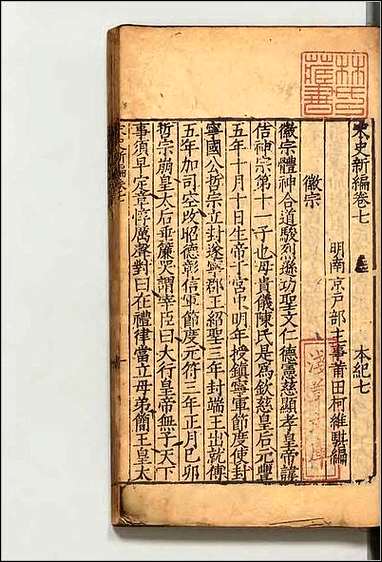 林氏藏書
宋史新編卷七 本紀七
明南京戸部主事莆田柯維騏編
淺草文庫
徽宗
徽宗體神合道駿烈遜功聖文仁德憲慈顯孝皇帝諱
佶神宗第十一子也母貴儀陳氏是爲欽慈皇后元豐
五年十月十日生帝于宮中明年授鎮寧軍節度使封
寧國公哲宗立封遂寧郡王紹聖三年封端王出就傅
五年加司空改昭德彰信軍節度元符三年正月己卯
哲宗崩皇太后垂簾哭謂宰臣曰大行皇帝無子天下
事須早定章惇厲聲對曰在禮律當立母弟簡王皇太
宋史新編卷七